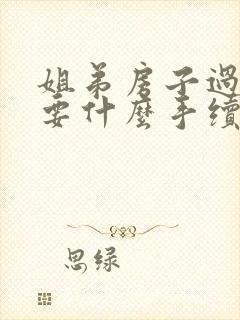 姐弟房子過
要什麼手續
思绿